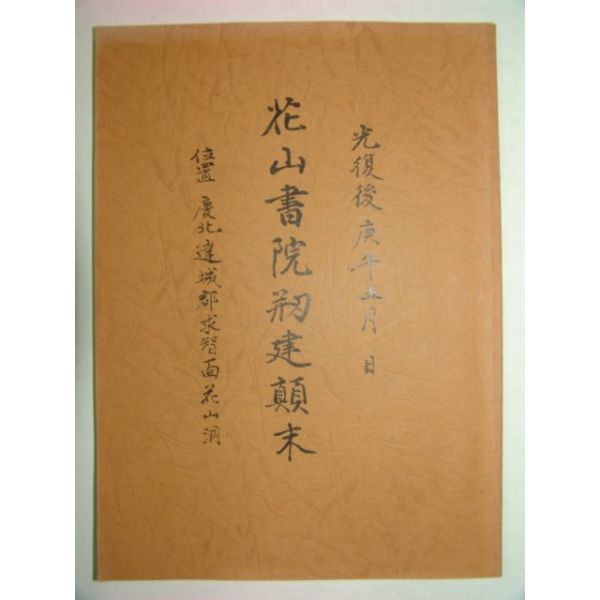 光復後 庚午五月 日
花山書院刱建顛末
位置 慶北達城郡求智面花山洞